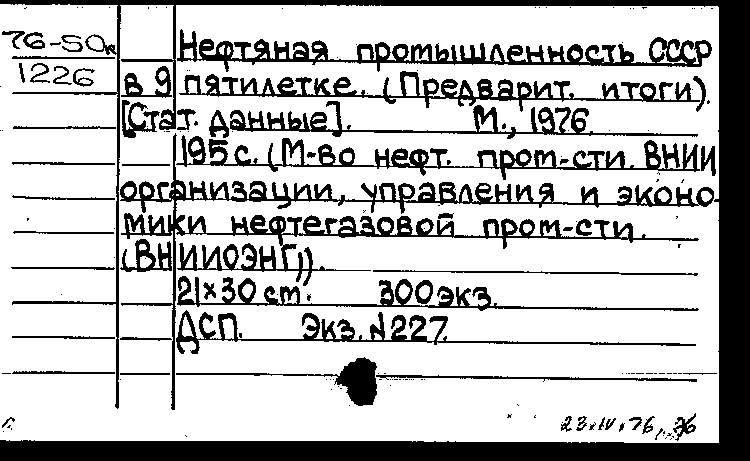 76-50к Нефтяная промышленность СССР
1226 в 9 пятилетке. (Предварит. итоги).
[Стат. данные]. М., 1976.
195 с. (М-во нефт. пром-сти. ВНИИ
организации, управления и эконо-
мики нефтегазовой пром-сти.
(ВНИИОЭНГ)).
21×30 см. 300 экз.
ДСП. Экз. №227.
23.IV.76,